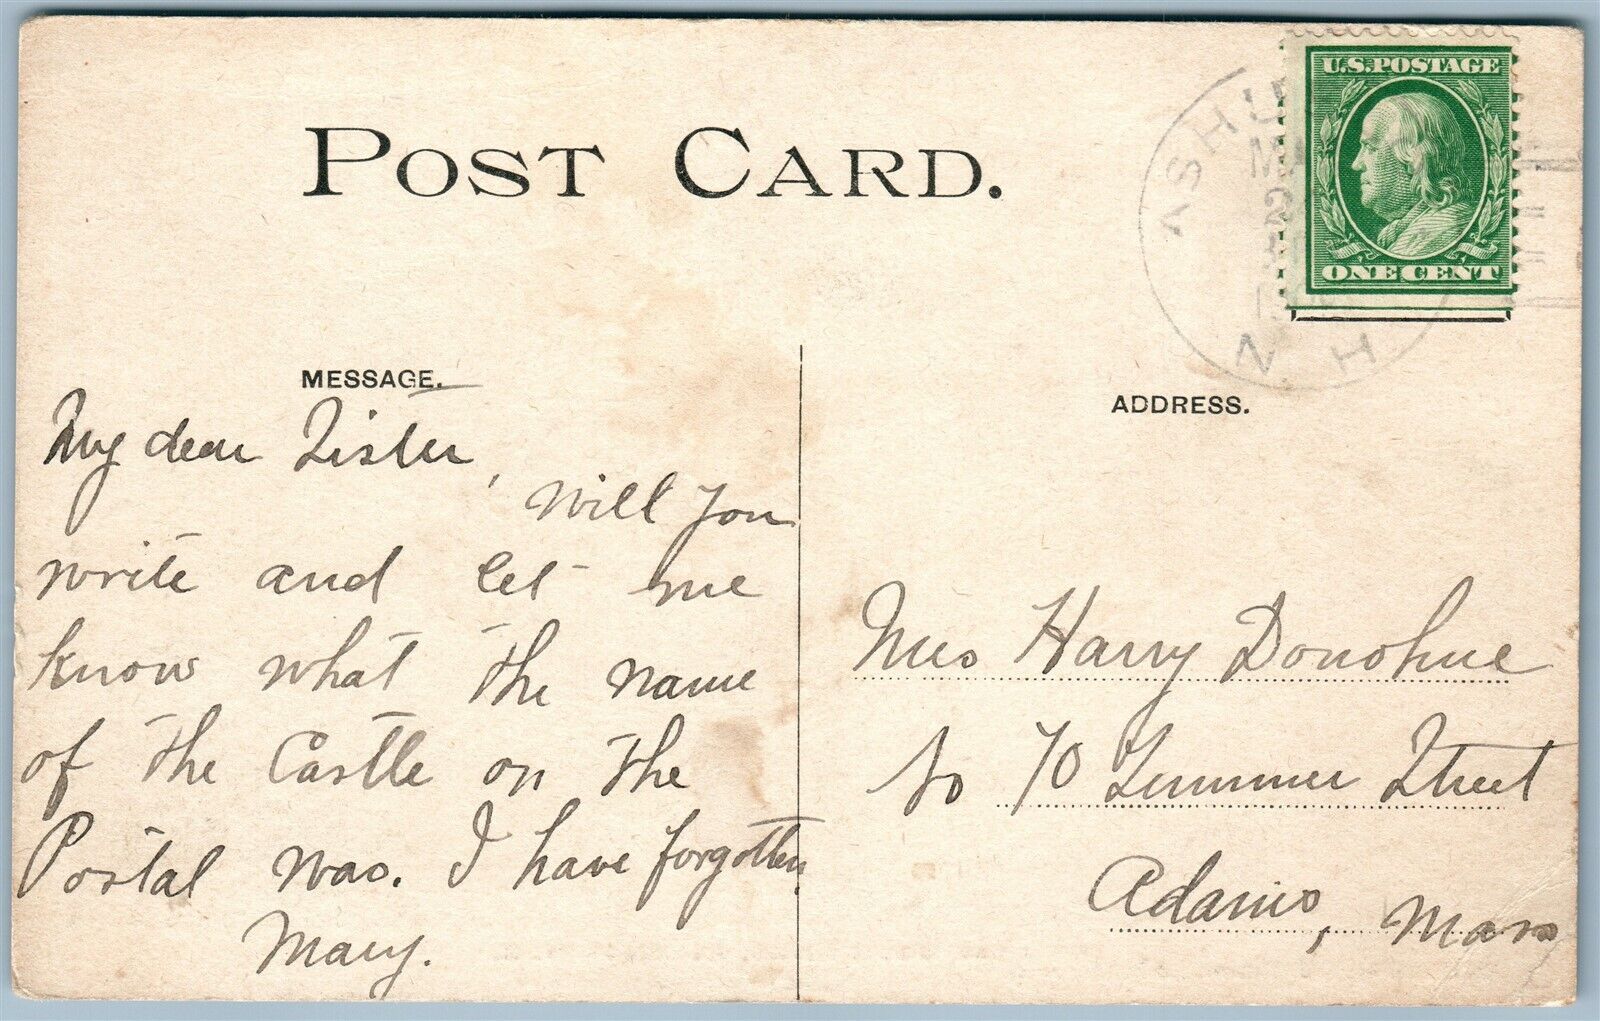 POST CARD.
U.S.POSTAGE
ONE CENT
ASHU
N H
MESSAGE.
My dear Sister,
Will you
write and let me
know what the name
of the Castle on the
Postal was. I have forgotten
Mary.
ADDRESS.
Mrs Harry Donohue
70 Summer Street
Adams, Mass